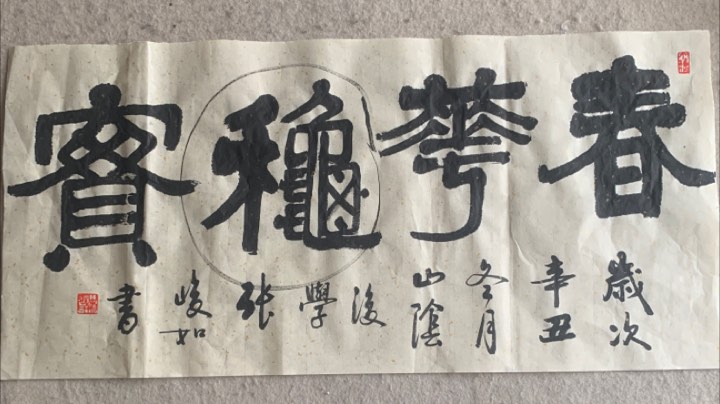 春華龝實
歲次
辛丑
冬月
山陰
後
學
張
峻如
書